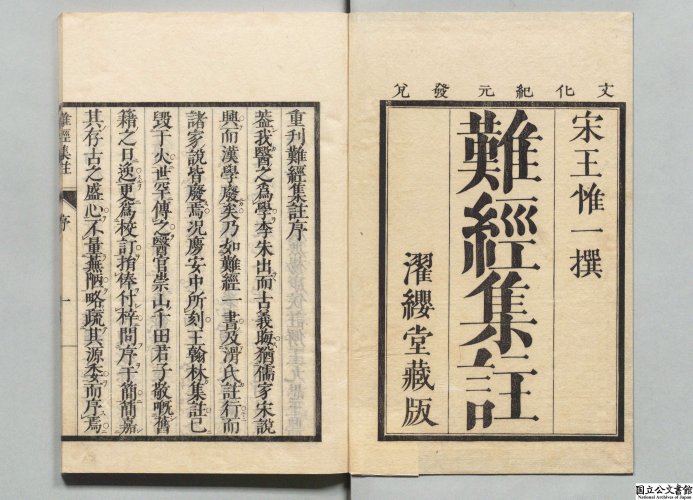 文化紀元發兌
宋王惟一撰
難經集註
濯纓堂藏版
重刊難經集註序
葢我醫之為學李朱出而古義晦猶儒家宋說
興而漢學廢矣乃如難經一書及滑氏註行而
諸家說皆廢焉況慶安中所刻王翰林集註已
毀于火世罕傳之醫官崇山千田君子敬嘅舊
籍之日逸更為校訂捐俸付梓問序于簡簡嘉
其存古之盛心不量蕪陋略疏其源委而序焉
難經集註
序
一
国立公文書館
National Archives of Japan